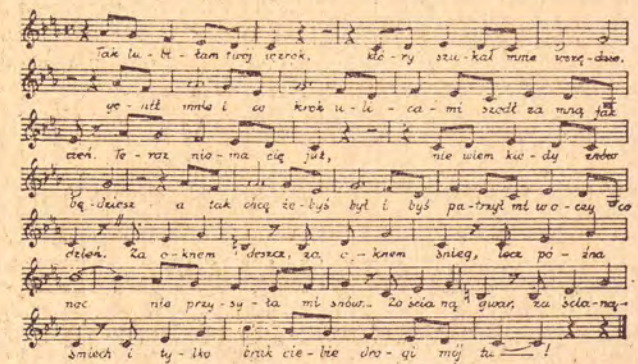 Tak lu - bi - łam twój wzrok, któ - ry szu - kał mnie wszę - dzie.
go - nił mnie i co krok u - li - ca - mi szedł za mną jak
cień. Te - raz nie - ma cię już, nie wiem kie - dy znów
bę - dziesz a tak chcę że - byś był i byś pa - trzył mi w o - czy co
dzień. Za o - knem deszcz, za o - knem śnieg, lecz pó - źna
noc nie przy - sy - ła mi snów. Za ścia - ną gwar, za ścia - ną
śmiech i ty - lko brak cie - bie dro - gi mój tu !